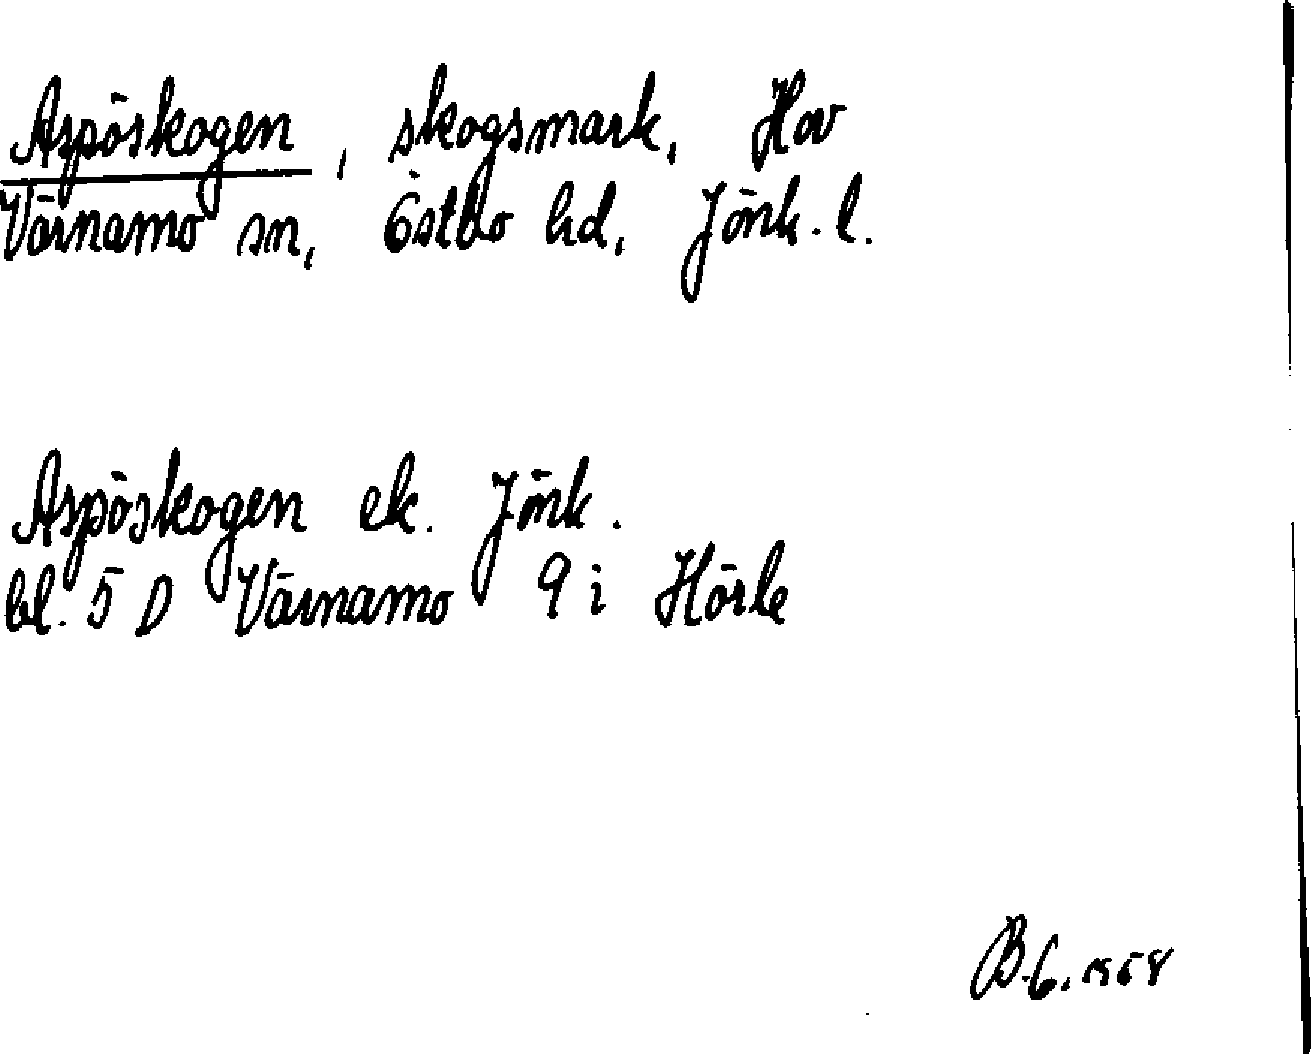 Aspöskogen, skogsmark, Hov
Värnamo sn, Östbo hd, Jönk. l.
Aspöskogen ek. Jönk.
bl. 5 D Värnamo 9 i Hörle
B. G. 1958